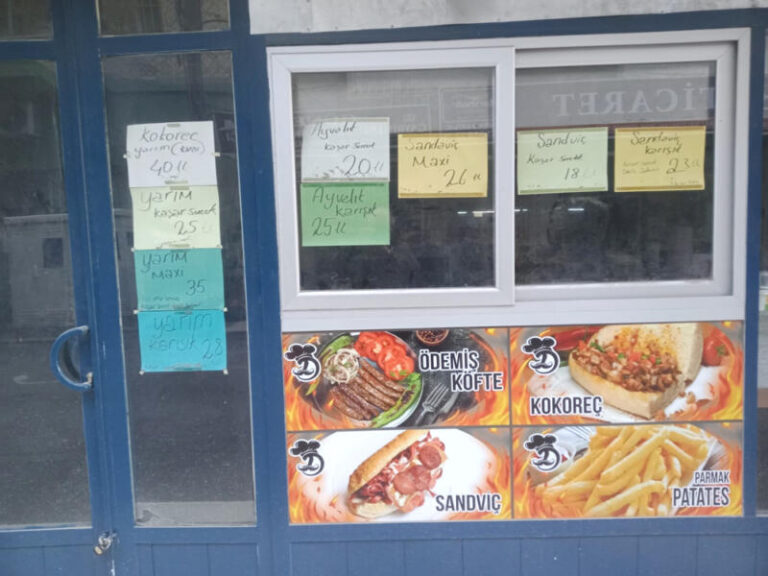 Kokoreç
yarım
40 tl
yarım
kaşar sucuk
25 tl
yarım
maxi
35
yarım
karışık 28
Ayvalık
kaşar sucuk
20 tl
Ayvalık
karışık
25 tl
Sandaviç
Maxi
26 tl
Sandviç
kaşar sucuk
18 tl
Sandaviç
karışık
23 tl
TİCARET
ÖDEMİŞ
KÖFTE
KOKOREÇ
SANDVİÇ
PARMAK
PATATES